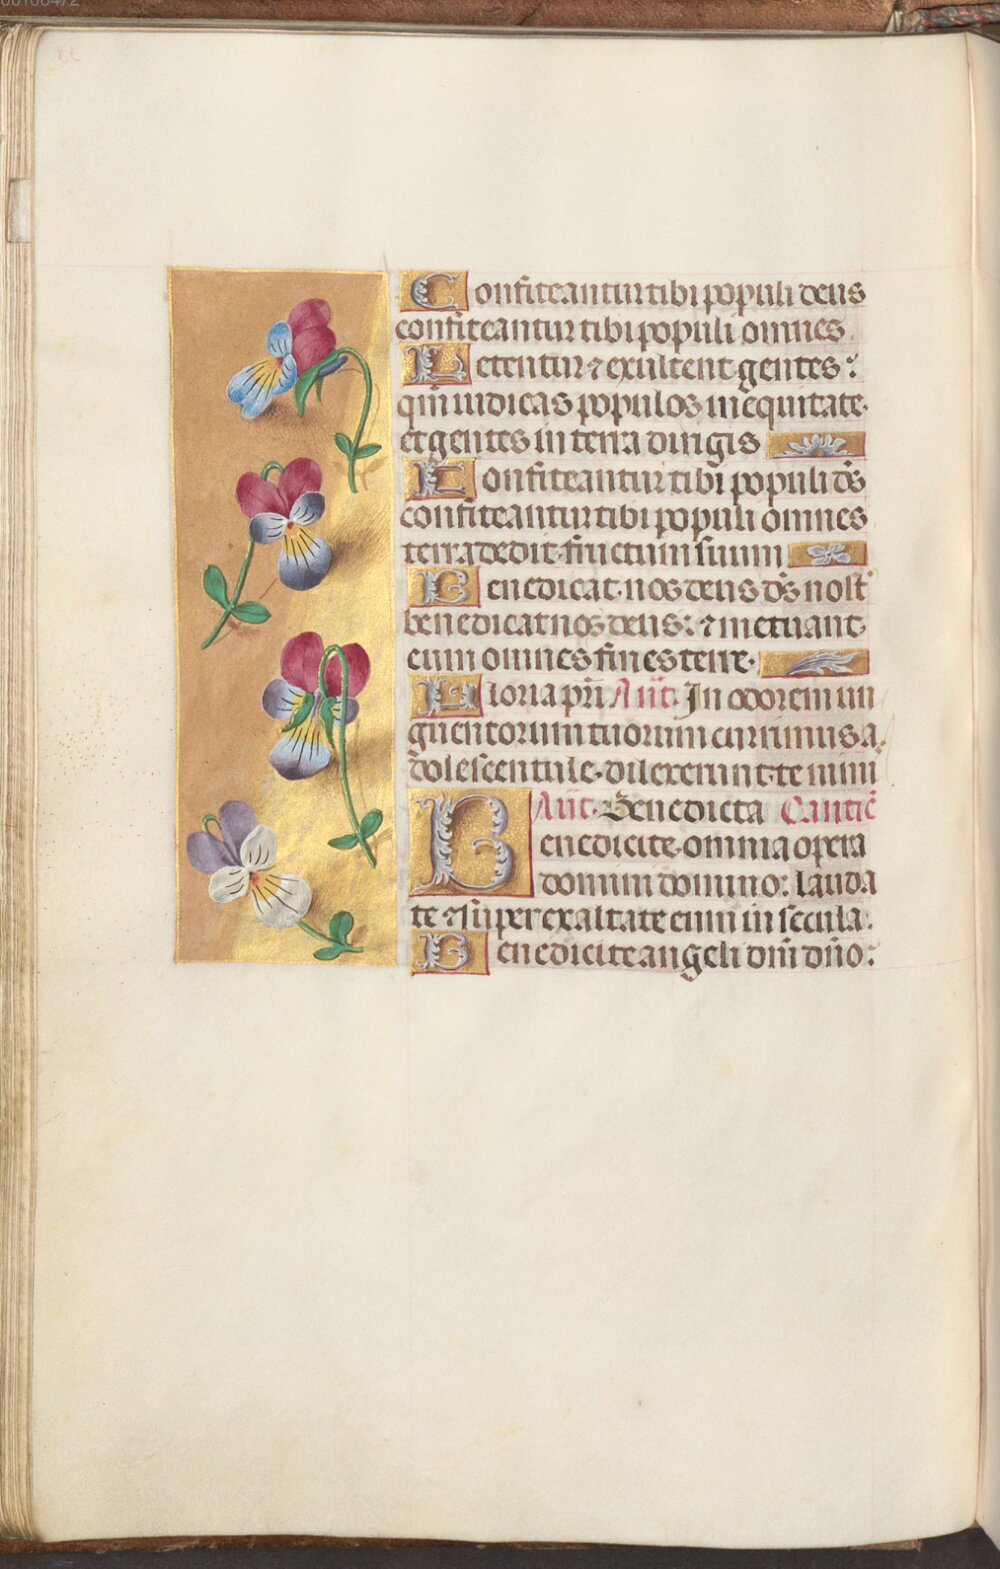 Confiteantur tibi populi deus
confiteantur tibi populi omnes.
Letentur ⁊ exultent gentes:
qm̄ iudicas populos in equitate.
et gentes in terra dirigis
Confiteantur tibi populi ds̄
confiteantur tibi populi omnes
terra dedit fructum suum
Benedicat nos deus ds̄ nost̄
benedicat nos deus: ⁊ metuant
eum omnes fines terre.
Gloria pr̄i Añt. In odorem un
guentorum tuorum currimus a
dolescentule dilexerunt te nimi
Añt. Benedicta Canticū
Benedicite omnia opera
domini domino: lauda
te ⁊ super exaltate eum in secula.
Benedicite angeli dñi dño: